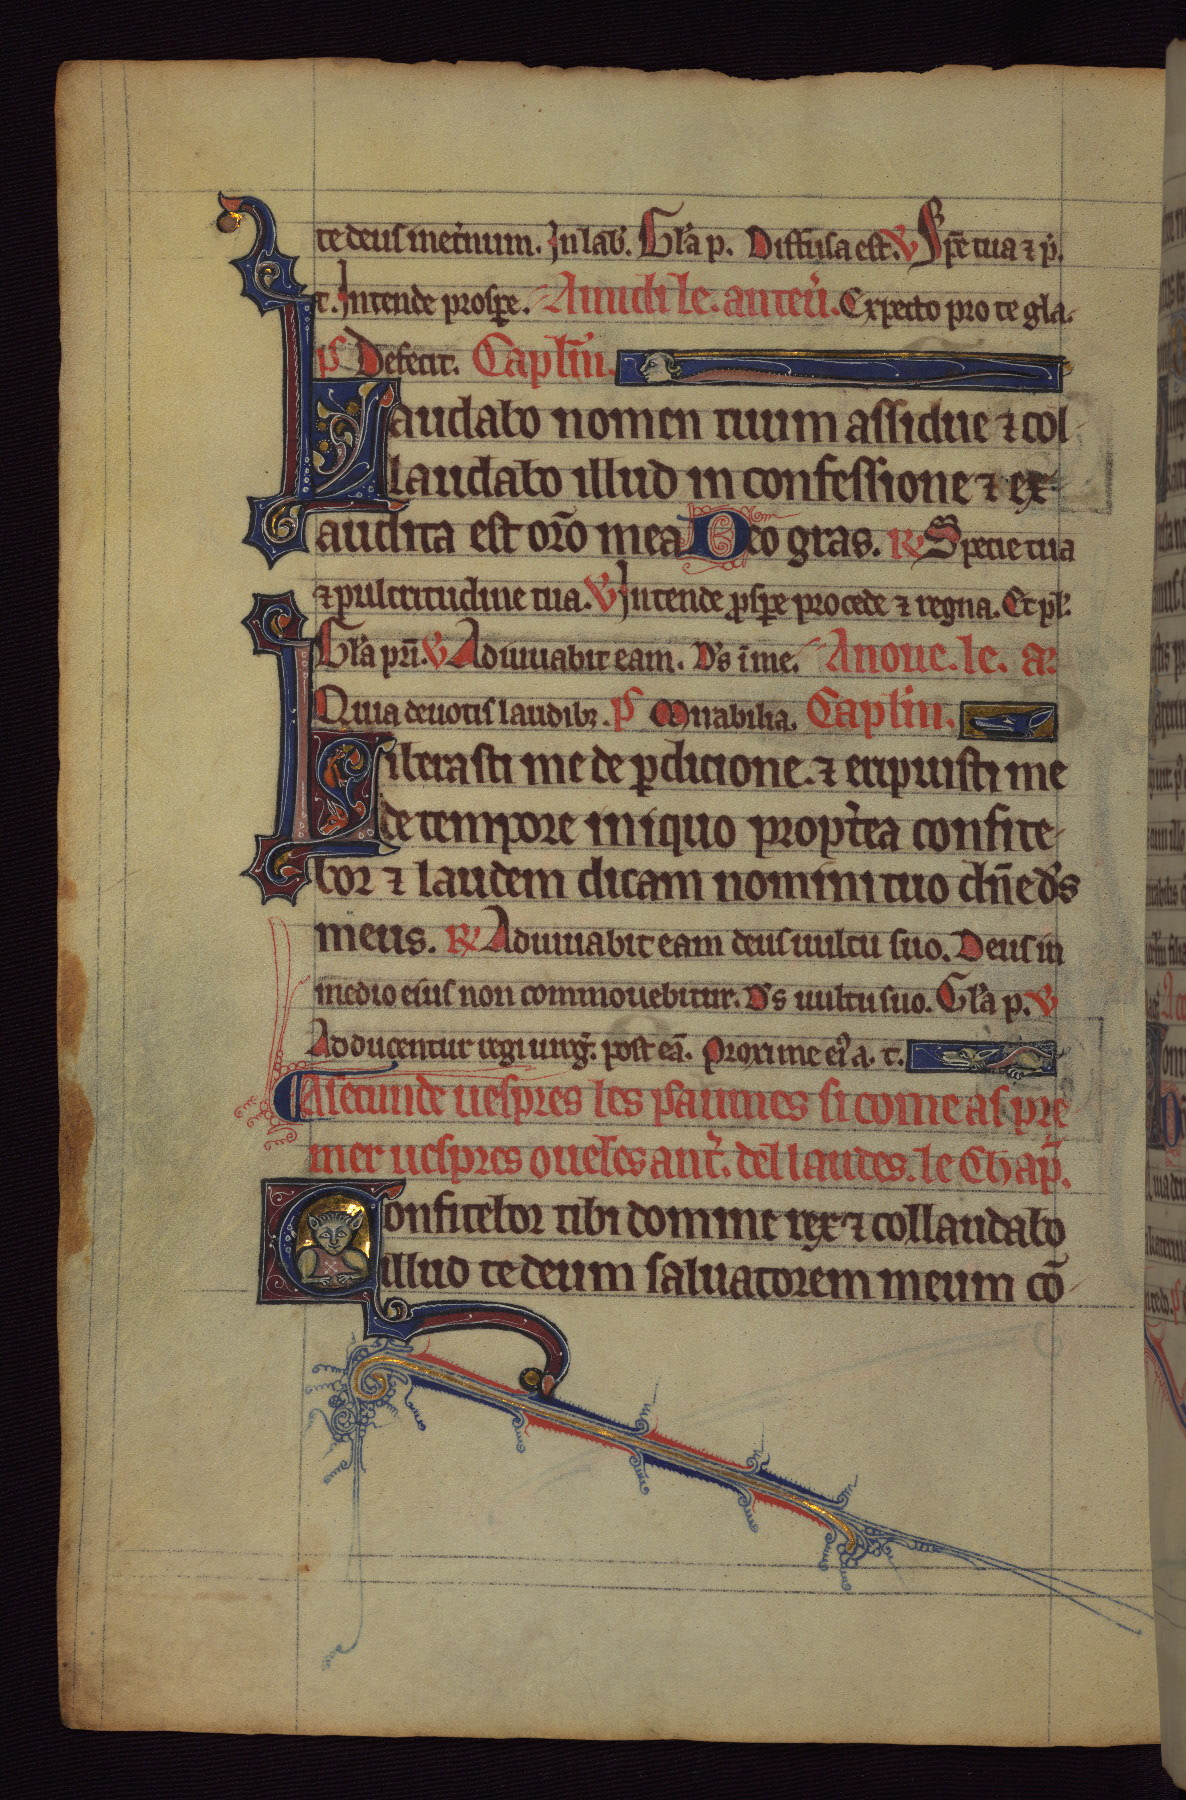 te deus inet̾num. In lab̾. Gl̾a p. Diffusa est. V Spē tua ⁊ p̾.
t. Intende prosꝑe. A midi le. anteu̾. Expecto pro te gla.
ps Defecit. Capl̾m̄.
Laudabo nomen tuum assidue ⁊ col
laudabo illud in confessione ⁊ ex
audita est or̄o mea Deo gras. R Specie tua
⁊ pulcritudine tua. V Intende ꝓsꝑe procede ⁊ regna. Et pl̾.
Gl̾a pr̄i. V Adiuuabit eam. D̾s ī me. A noue. le. an
Quia deuotis laudibꝫ. ps Mirabilia. Capl̾m.
Liberasti me de ꝑdicione. ⁊ eripuisti me
de tempore iniquo propt̾ea confite
bor ⁊ laudem dicam nomini tuo dn̄e d̾s
meus. R Adiuuabit eam deus uultu suo. Deus in
medio eius non commouebitur. D̾s uultu suo. Gl̾a p. V
Adducentur regi uirg̾. post eā. Proxime ei̾ a. t.
A secunde uespres les psaumes si come as pre
mer uespres oueles ant̾. del laudes. le Chap̾.
Confitebor tibi domine rex ⁊ collaudabo
illud te deum saluatorem meum cō